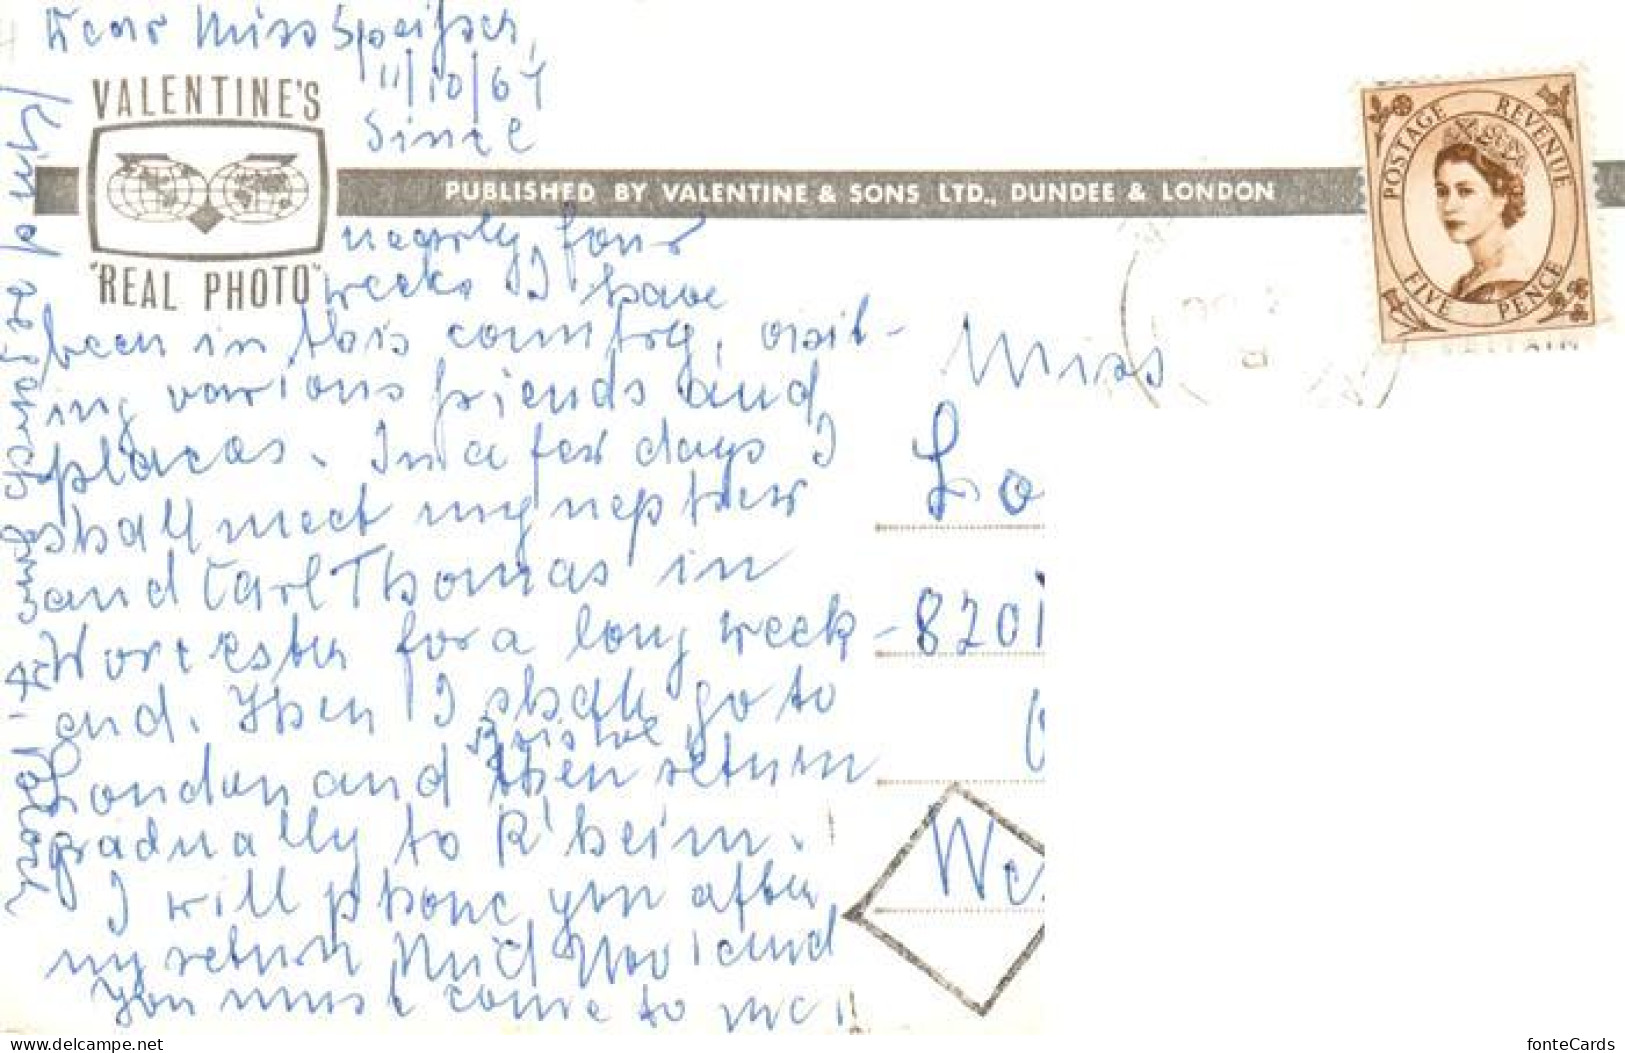 Dear Miss Speißer,
11/10/64
VALENTINE'S
"REAL PHOTO"
PUBLISHED BY VALENTINE & SONS LTD., DUNDEE & LONDON
POSTAGE REVENUE
FIVE PENCE
Since
nearly four
weeks I have
been in this country, visit-
ing various friends and
places. In a few days I
shall meet my nephew
and Carl Thomas in
Worcester for a long week-
end. Then I shall go to
Bristol,
London and then return
gradually to R'heim.
I will phone you after
my return Mid Nov and
you must come to me!!
Miss
Lo
8201
We
fonteCards